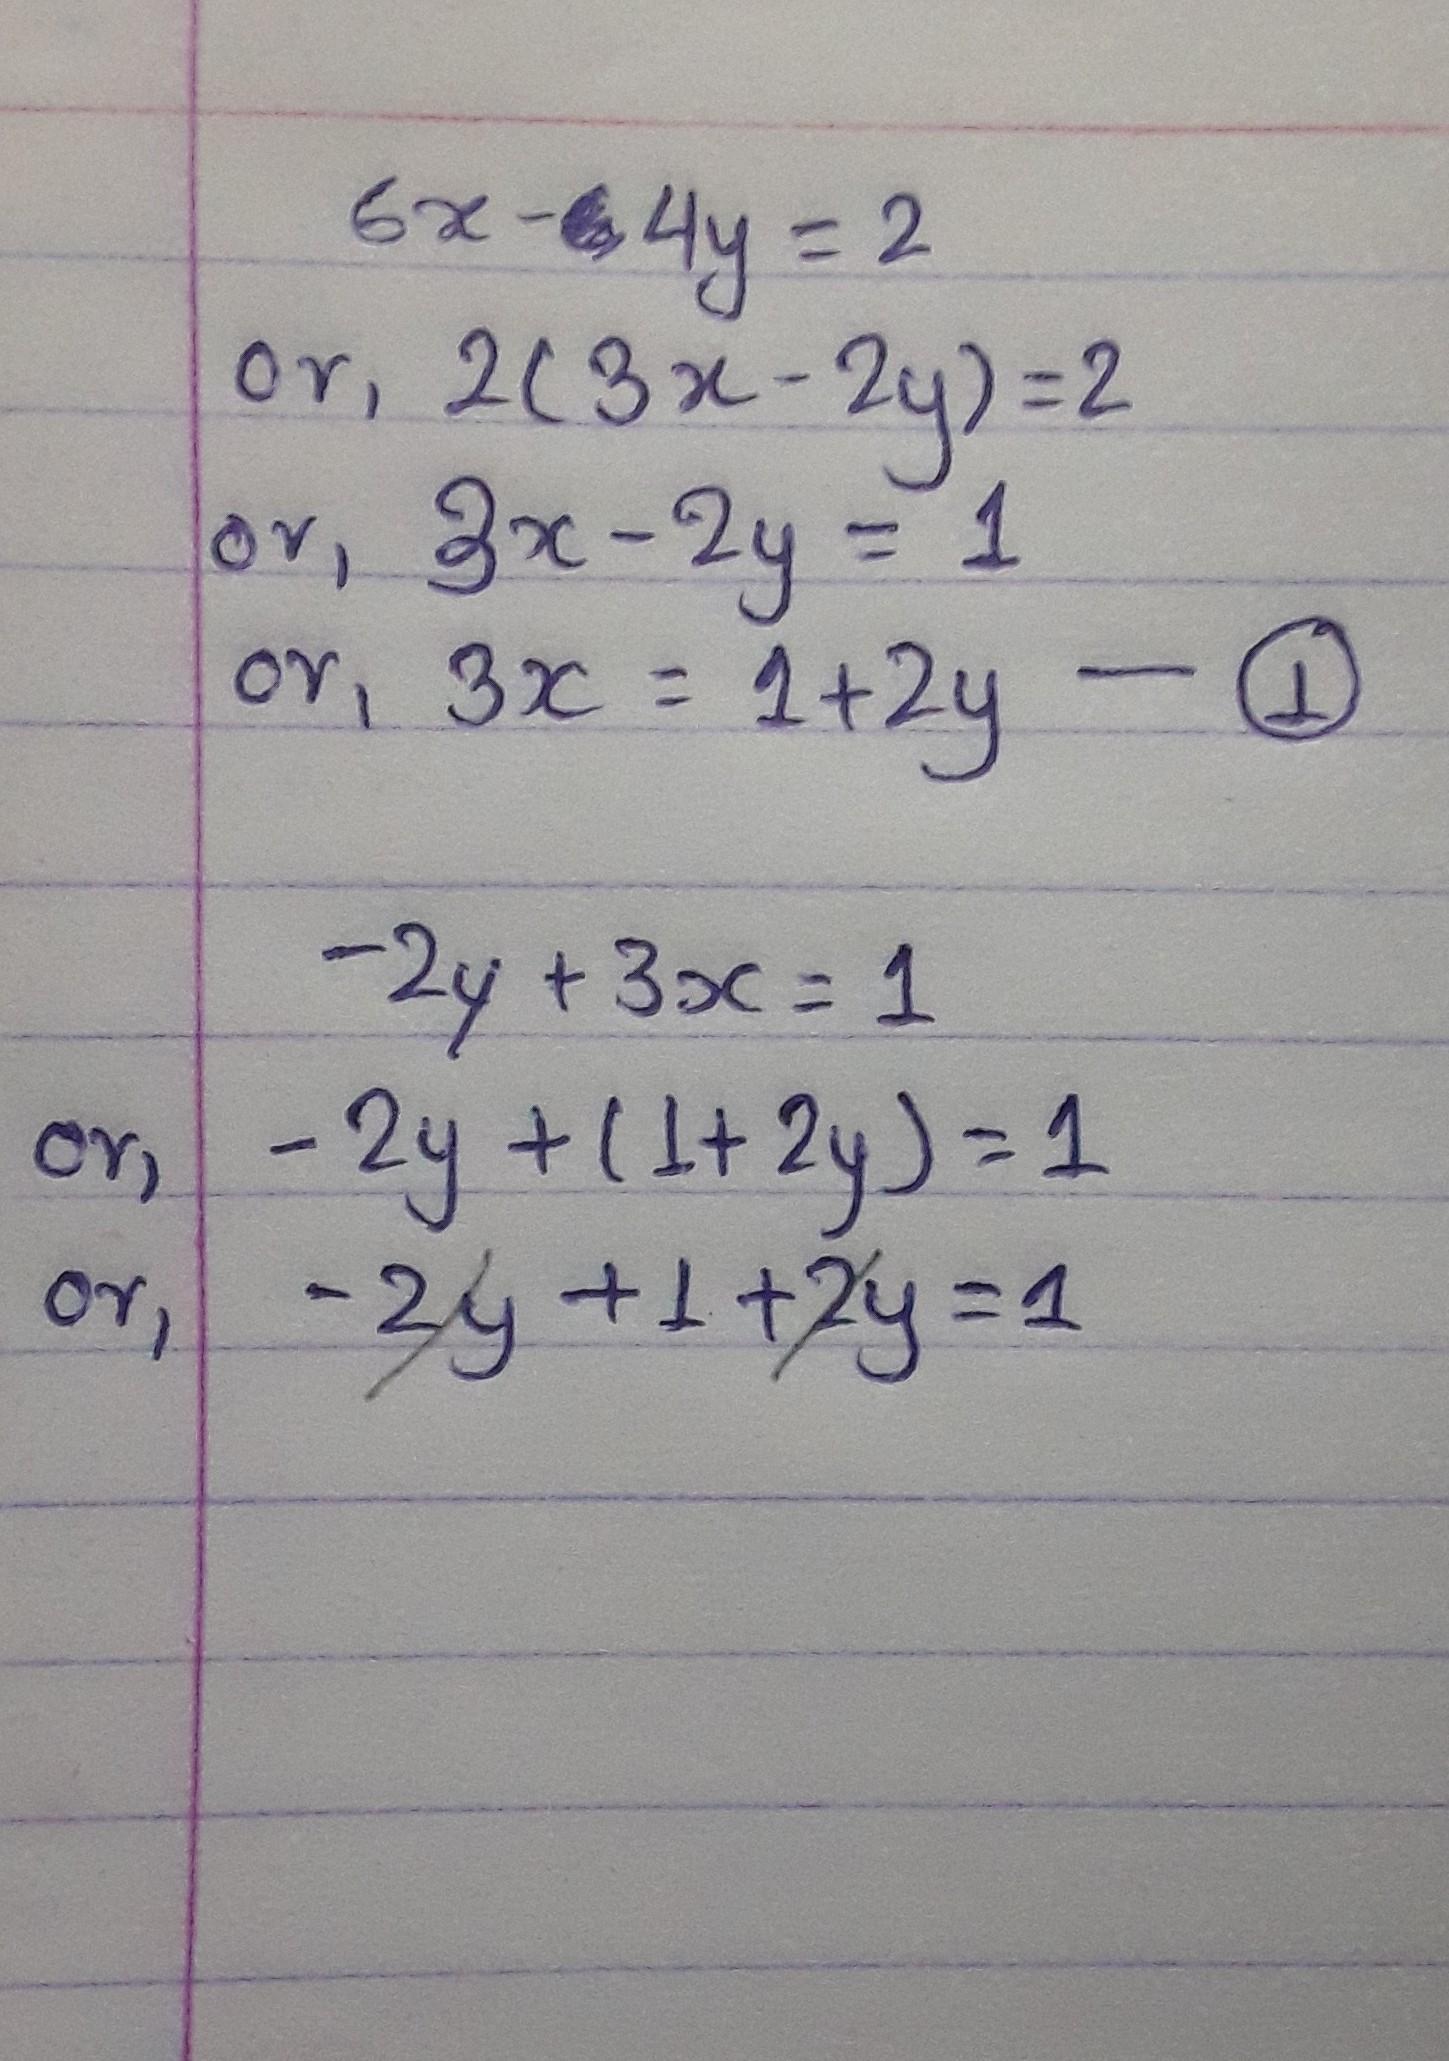 6x - 4y = 2
or, 2(3x - 2y) = 2
or, 3x - 2y = 1
or, 3x = 1 + 2y — ①
-2y + 3x = 1
or, -2y + (1 + 2y) = 1
or, -2y + 1 + 2y = 1